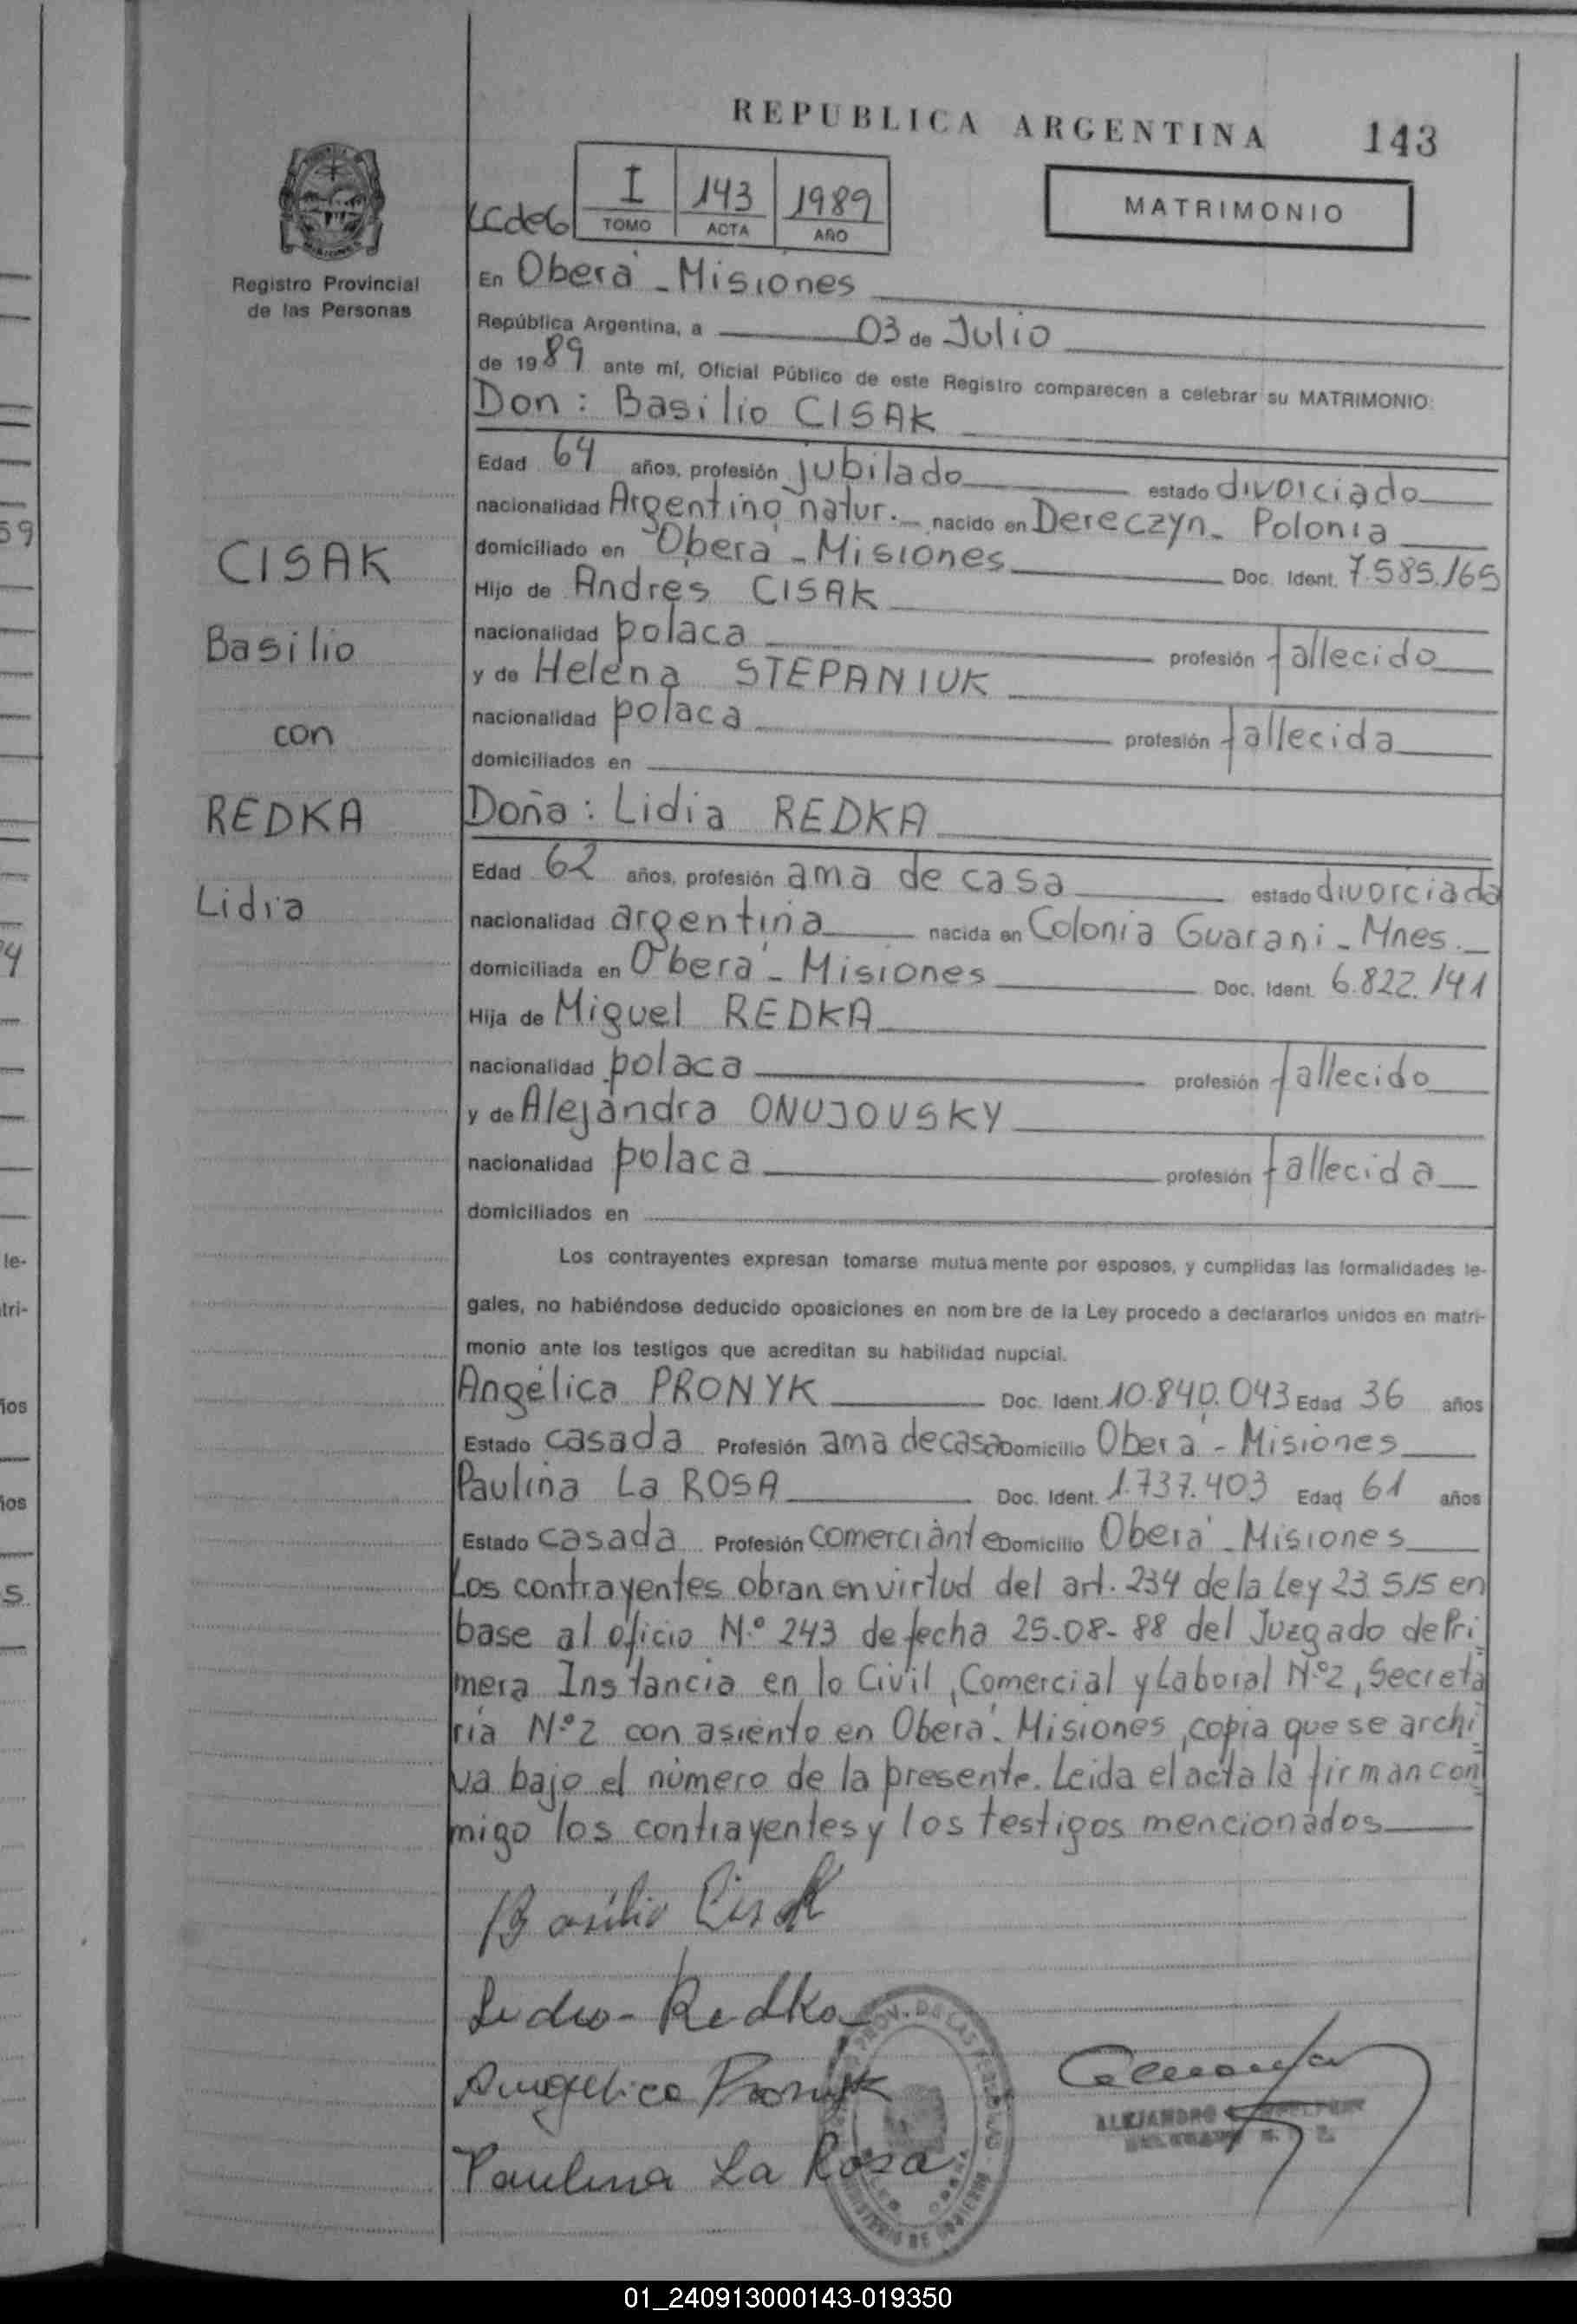 REPUBLICA ARGENTINA 143
I 143 1989
TOMO ACTA AÑO
MATRIMONIO
Registro Provincial
de las Personas
En Oberá - Misiones
República Argentina, a 03 de Julio
de 1989 ante mí, Oficial Público de este Registro comparecen a celebrar su MATRIMONIO:
Don: Basilio CISAK
Edad 64 años, profesión jubilado estado divorciado
nacionalidad Argentino natur. nacido en Dereczyn - Polonia
domiciliado en Oberá - Misiones Doc. Ident. 7.585.165
Hijo de Andres CISAK
nacionalidad polaca profesión fallecido
y de Helena STEPANIUK
nacionalidad polaca profesión fallecida
domiciliados en
CISAK
Basilio
con
REDKA
Lidia
Doña: Lidia REDKA
Edad 62 años, profesión ama de casa estado divorciada
nacionalidad argentina nacida en Colonia Guarani - Mnes.
domiciliada en Oberá - Misiones Doc. Ident. 6.822.141
Hija de Miguel REDKA
nacionalidad polaca profesión fallecido
y de Alejandra ONUJOVSKY
nacionalidad polaca profesión fallecida
domiciliados en
Los contrayentes expresan tomarse mutuamente por esposos, y cumplidas las formalidades le-
gales, no habiéndose deducido oposiciones en nombre de la Ley procedo a declararlos unidos en matri-
monio ante los testigos que acreditan su habilidad nupcial.
Angélica PRONYK Doc. Ident. 10.840.043 Edad 36 años
Estado casada Profesión ama de casa Domicilio Oberá - Misiones
Paulina La ROSA Doc. Ident. 1.737.403 Edad 61 años
Estado casada Profesión comerciante Domicilio Oberá - Misiones
Los contrayentes obran en virtud del art. 234 de la Ley 23.515 en
base al oficio N.º 243 de fecha 25-08-88 del Juzgado de Pri
mera Instancia en lo Civil, Comercial y Laboral Nº 2, Secreta
ria Nº 2 con asiento en Oberá - Misiones, copia que se archi
va bajo el número de la presente. Leida el acta la firman con
migo los contrayentes y los testigos mencionados
Basilio Cisak
Lidia - Redka
Angelica Pronyk
Paulina La Rosa
ALEJANDRO
01_240913000143-019350